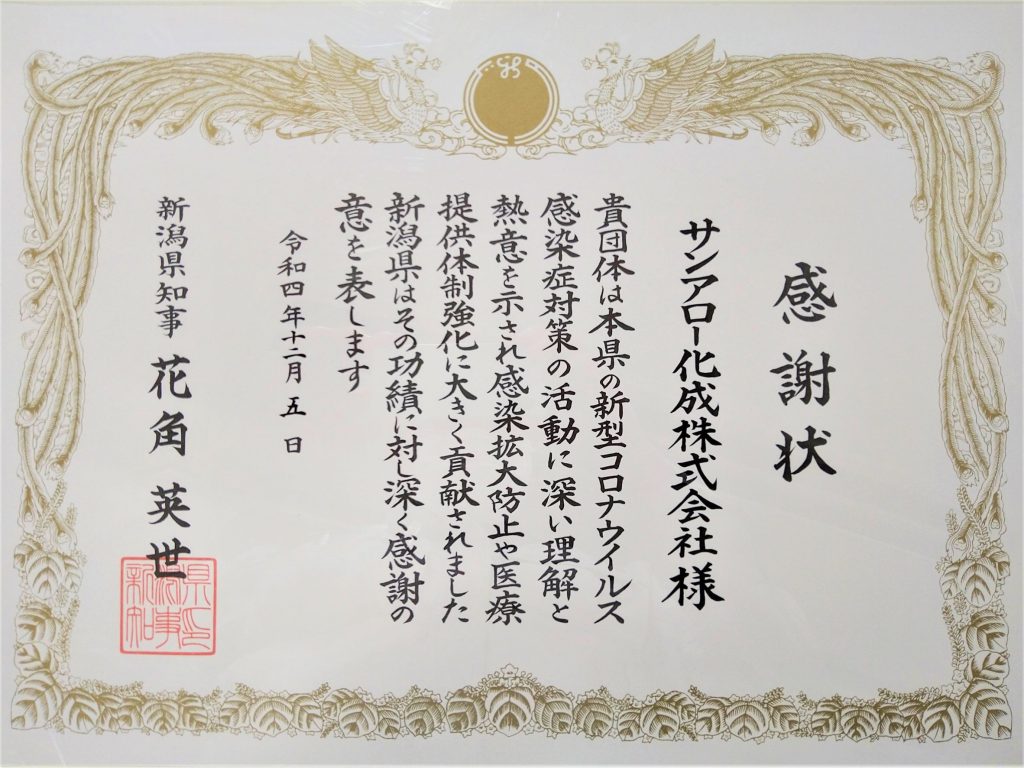 感謝状
サンアロー化成株式会社様
貴団体は本県の新型コロナウイルス
感染症対策の活動に深い理解と
熱意を示され感染拡大防止や医療
提供体制強化に大きく貢献されました
新潟県はその功績に対し深く感謝の
意を表します
令和四年十二月五日
新潟県知事 花角英世
新潟県知事印